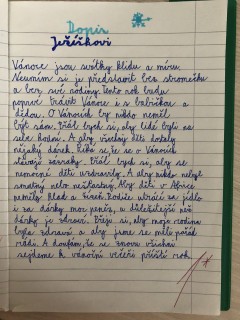 Dopis
Ježíškovi
Vánoce jsou svátky klidu a míru.
Neumím si je představit bez stromečku
a bez své rodiny. Tento rok budu
poprvé trávit Vánoce i s babičkou a
dědou. O Vánocích by nikdo neměl
být sám. Přál bych si, aby lidé byli na
sebe hodní. A aby všechny děti dostaly
nějaký dárek. Říká se, že se o Vánocích
stávají zázraky. Přál bych si, aby se
nemocné děti uzdravily. A aby nikdo nebyl
smutný nebo nešťastný. Aby děti v Africe
neměly hlad a žízeň. Rodiče utrácí za jídlo
i za dárky moc peněz, a důležitější než
dárky je zdraví. Přeji si, aby moje rodina
byla zdravá a aby jsme se měli pořád
rádi. A doufám, že se znovu všichni
sejdeme k vánoční večeři příští rok.
1*